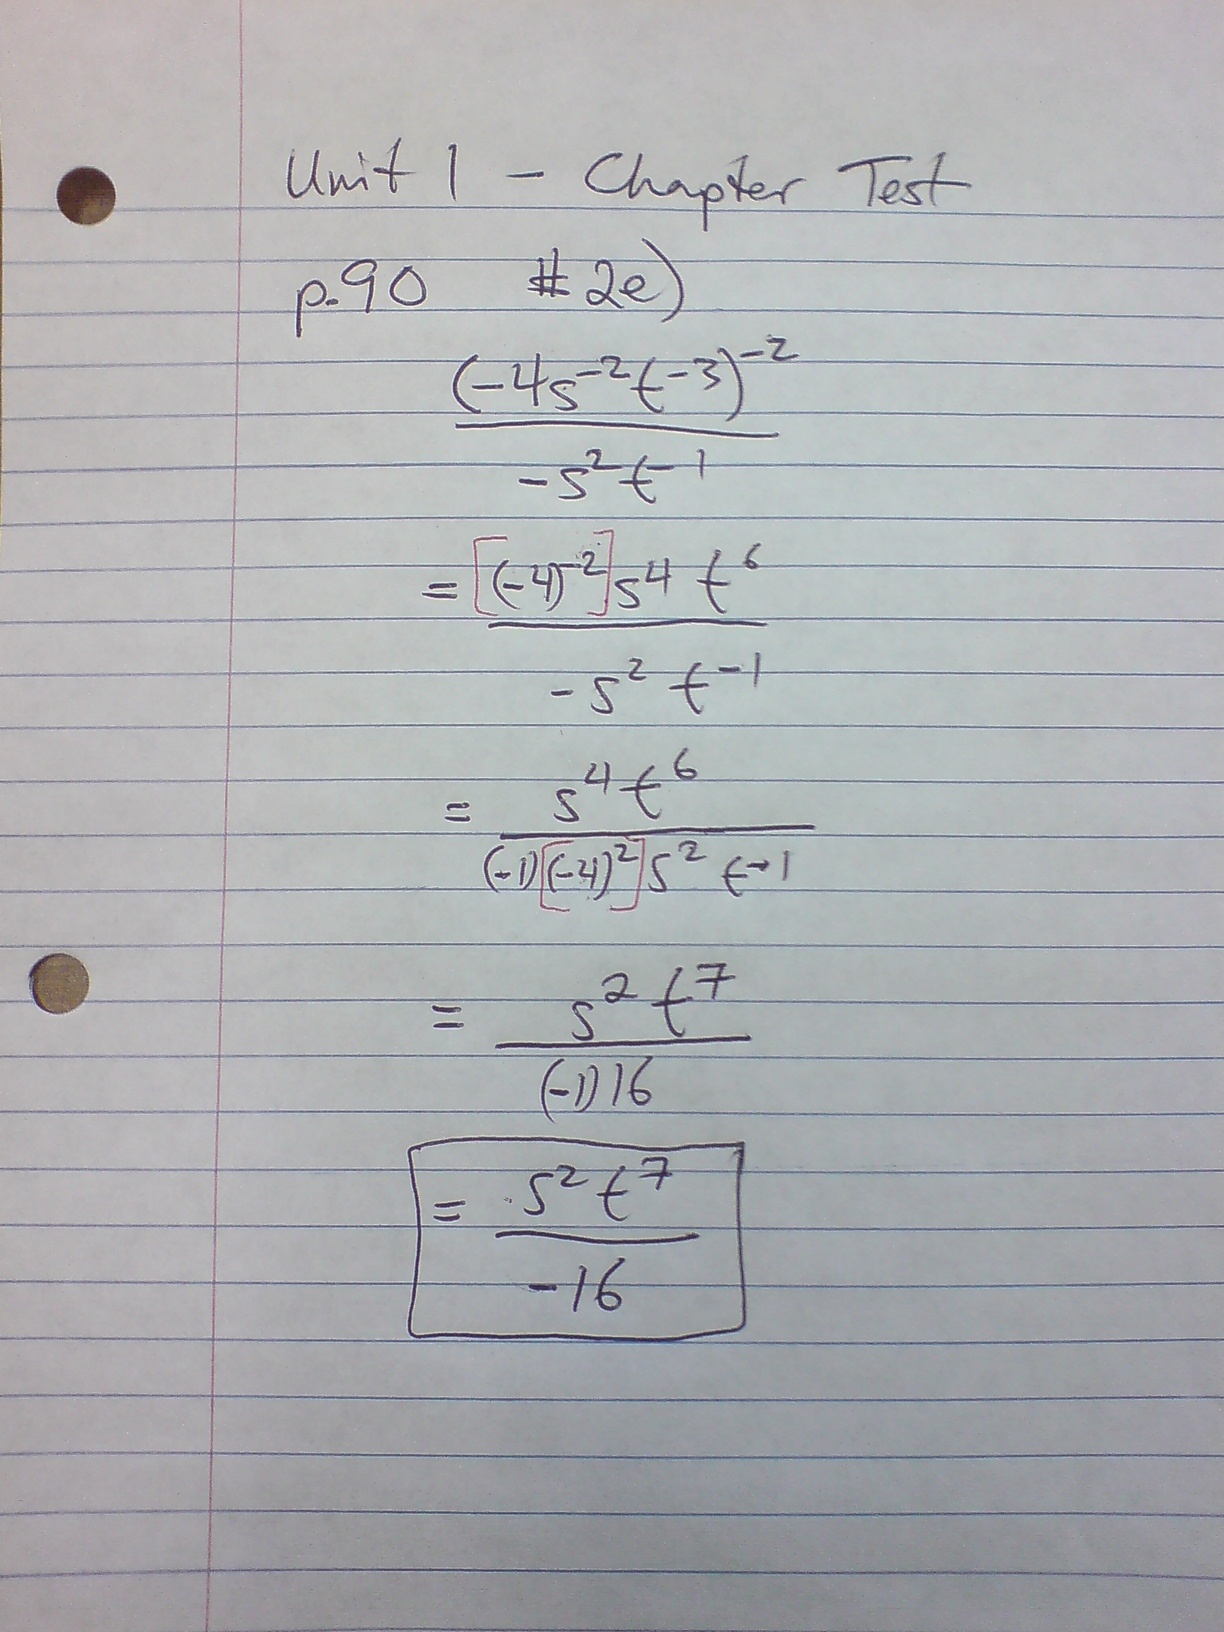 Unit 1 - Chapter Test
p.90 #2e)
(-4s⁻²t⁻³)⁻²
-s²t⁻¹
= [(-4)⁻²]s⁴ t⁶
-s² t⁻¹
= s⁴t⁶
(-1)[(-4)²]s² t⁻¹
= s² t⁷
(-1)16
= s² t⁷
-16